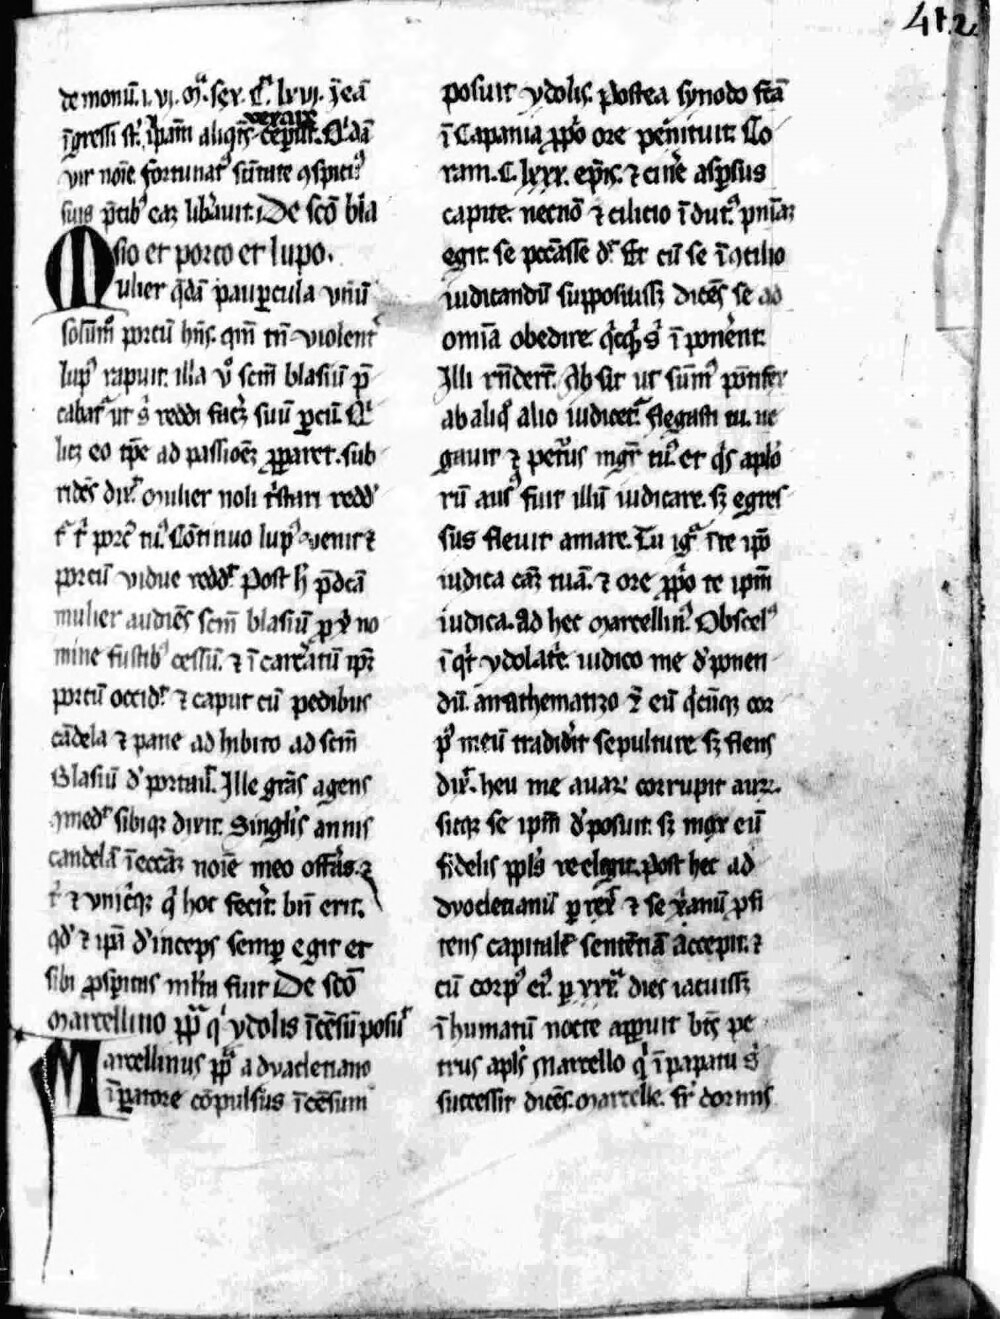 412
demoniū. i. vi. mª. sex. Cª. lxvi. ī eā
īgressi st̄. ip̄am aliqͣn̄s vexare ceperūt. Qͥdā
vir noīe fortunatꝰ scītate ꝯspicuꝰ
suis p̄cibꝰ eaꝫ libˀauit. De scō bla
sio et porco et lupo.
Mulier q̄dā paup̄cula vnū
solūmͦ porcū hn̄s. quē tn̄ violentˀ
lupꝰ rapuit. illa vͦ scm̄ blasiū p̄
cabatˀ ut sͥ reddi facˀet suū porcū. Qͥ
licꝫ eo tp̄e ad passionē ꝓꝑaret. sub
ridēs dix̄. Mulier noli tˀstari redd
tˀ tͥ porcꝰ tuꝰ. Cōtinuo lupꝰ venit ⁊
porcū vidue reddˀ. Post h̄ p̄dcā
mulier audiēs scm̄ blasiū ꝓ xͥ no
mine fustibꝰ cessū. ⁊ ī carcˀatū ip̄ꝫ
porcū occidˀ. ⁊ caput cū pedibus
cādela ⁊ pane adhibito ad scm̄
Blasiū dˀportauˀ. Ille grās agens
ꝯmedˀ sibiqꝫ dixit. Singlˀis annis
candelā ī ecc̄aꝫ noīe meo offˀas. ⁊
tͥ ⁊ vnicͥqꝫ qͥ hoc fecˀit. bn̄ erit.
qd̄ ⁊ ip̄a dˀinceps semꝑ egit et
sibi ꝓsꝑitas mlˀta fuit. De scō
Marcellino pp̄ qͥ ydolis īcēsū posuˀ
Marcellinus pp̄ª a dyocletiano
īꝑatore cōpulsus īcēsum
posuit ydolis. postea synodo fcā
ī Capania ꝓpͥo ore penituit. Co
ram. C. lxxx. ep̄is. ⁊ cinˀe asꝑsus
capite. necnō ⁊ cilicio īdutꝰ pn̄iaꝫ
egit. se peccasse dˀ. Et cū se ī ꝯcilio
iudicandū supposuissꝫ dicēs se ad
omīa obedire. qͤcūqꝫ sͥ īponēnt.
Illi rn̄derūt. Absit ut sūmꝰ pōtifex
ab aliqͦ alio iudicetˀ. Negasti tu. ne
gauit ⁊ petrus mgr̄ tuꝰ. et qͥs aplˀo
rū ausꝰ fuit illū iudicare. sꝫ egres
sus fleuit amare. Tu igˀ ī te ip̄o
iudica cāꝫ tuā. ⁊ ore ꝓpͥo te ip̄m
iudica. Ad hec marcellinꝰ. Ob scelꝰ
īqͥt ydolatˀe. iudico me dˀponen
dū. anathematizo ⁊ eū qͥcūqꝫ cor
pꝰ meū tradidˀit sepulture. sꝫ flens
dix̄. heu me auarū corrupit aurꝫ.
sicqꝫ se ip̄m dˀposuit. sꝫ mox eū
fidelis pplˀs reelegit. Post hec ad
dyocletianū ꝑrexˀ ⁊ se xˀanū ꝓfi
tens capitalē sentētiā accepit. ⁊
cū corpꝰ eiꝰ. ꝑ xxxª. dies iacuissꝫ
īhumatū nocte apꝑuit btꝰ pe
trus aplˀs Marcello qͥ ī papatu sͥ
successit dicēs. Marcelle. fr̄ dormis